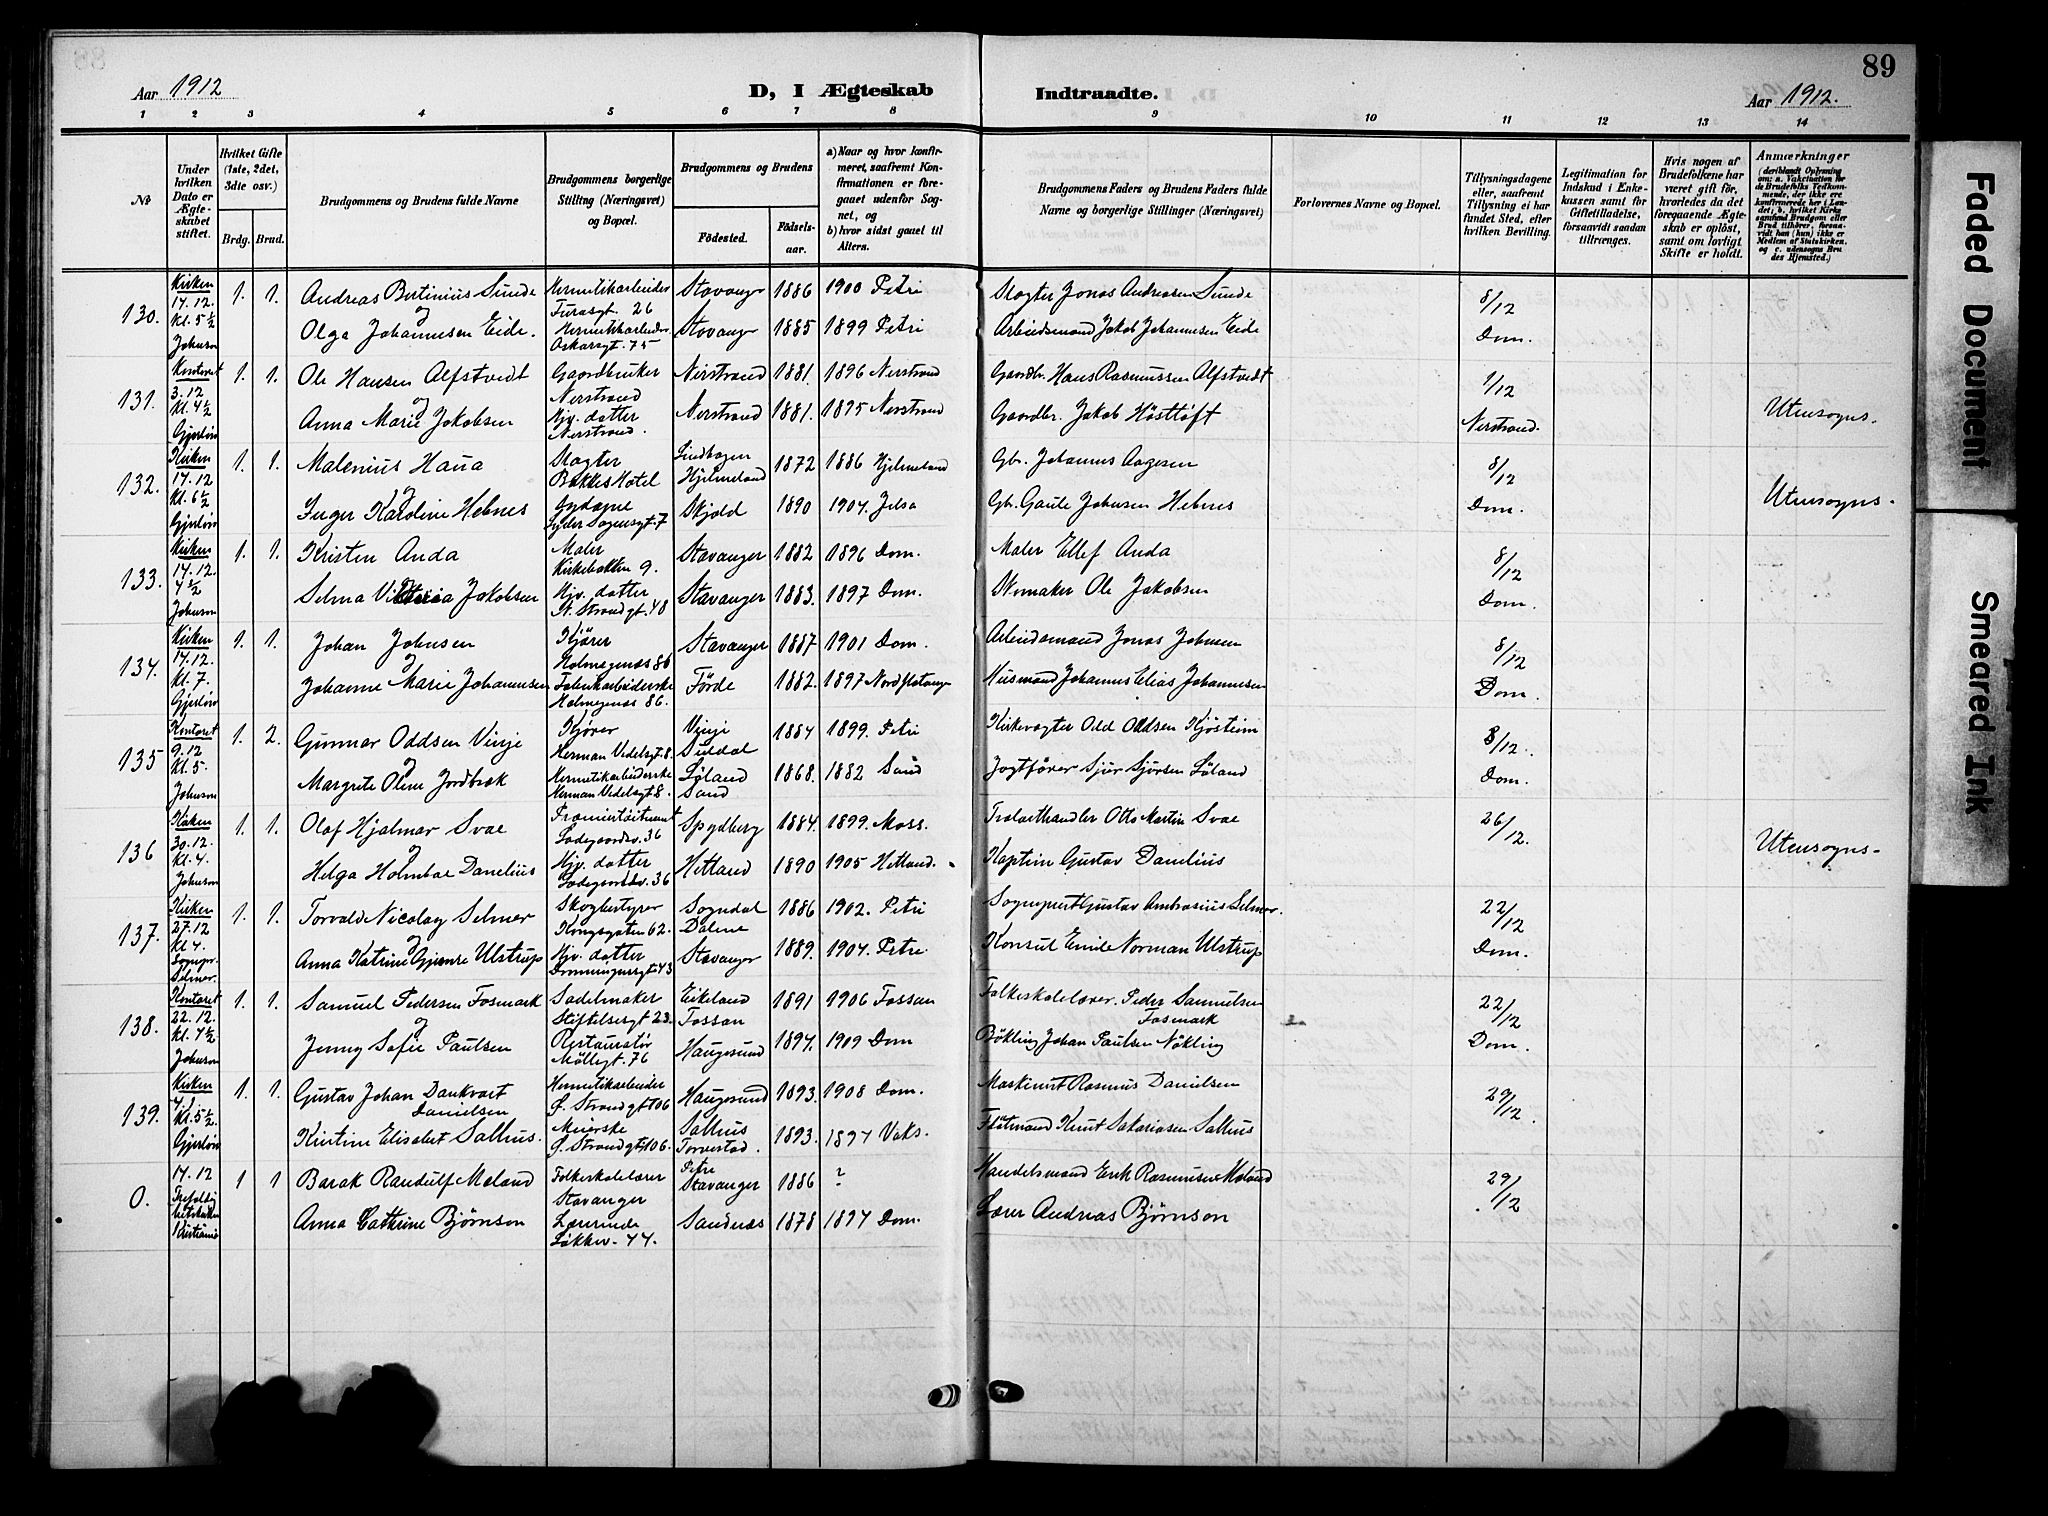 89
Aar 1912
D, I Ægteskab Indtraadte.
Aar 1912.
1 2 3 4 5 6 7 8 9 10 11 12 13 14
№
Under hvilken Dato er Ægteskabet stiftet.
Hvilket Gifte (1ste, 2det, 3die osv.)
Brdg. Brud.
Brudgommens og Brudens fulde Navne
Brudgommens borgerlige Stilling (Næringsvei) og Bopæl.
Brudgommens og Brudens
Födested.
Födselsaar.
a) Naar og hvor konfirmeret, saafremt Konfirmationen er foregaaet udenfor Sognet, og
b) hvor sidst gaaet til Alters.
Brudgommens Faders og Brudens Faders fulde Navne og borgerlige Stillinger (Næringsvei)
Forlovernes Navne og Bopæl.
Tillysningsdagene eller, saafremt Tillysning ei har fundet Sted, efter hvilken Bevilling.
Legitimation for Indskud i Enkekassen samt for Giftetilladelse, forsaavidt saadan tiltrænges.
Hvis nogen af Brudefolkene har været gift før, hvorledes da det foregaaende Ægteskab er opløst, samt om lovligt Skifte er holdt.
Anmærkninger
130. Kirken 14.12. Kl. 5½ Johnson 1. 1.
Andreas Bertinius Sunde Hermetikarbeider 26 Stavanger 1886 1900 Petri Slagter Jonas Andreasen Sunde 8/12
og
Olga Johannesen Eide. Hermetikarbeider Oskarsgt. 75 Stavanger 1885 1899 Petri Arbeidsmand Jakob Johannesen Eide Dom.
131. Kontoret 3.12 Kl. 4½ Gjerløw 1. 1.
Ole Hansen Alfstvedt Gaardbruker Nerstrand Nerstrand 1881. 1896 Nerstrand Gaardbr. Hans Rasmussen Alfstvedt 1/12
og
Anna Marie Jakobsen Hjv. datter Nerstrand. Nerstrand 1881. 1895 Nerstrand Gaardbr. Jakob Nerstrand. Utensogns.
132. Kirken 14.12 Kl. 6½ Gjerløw 1. 1.
Malenius Haua Slagter Bakkes Hotel Hjelmeland 1872 1886 Hjelmeland Gbr. Johannes Aagesen 8/12
og
Inger Karoline Hebnes Skjold 1890 1904. Jelsa Gbr. Gaute Johnsen Hebnes Dom. Utensogns.
133. Kirken 14.12. 4½ Johnson 1. 1.
Kristen Anda Maler Kirkebakken 9. Stavanger 1882 1896 Dom. Maler Ellef Anda 8/12
og
Selma Viktoria Jakobsen Hjv. datter St. Strandgt. 48 Stavanger 1883. 1897 Dom. Skomaker Ole Jakobsen Dom.
134. Kirken 14.12. Kl. 7. Gjerløw 1. 1.
Johan Johnsen Kjører Holmegenæs 86 Stavanger 1887 1901 Dom. Arbeidsmand Jonas Johnsen 8/12
og
Johanne Marie Johannesen Fabrikarbeiderske Holmegenæs 86. Förde 1882. 1897 Husmand Johannes Elias Johannesen Dom.
135 Kontoret 9.12 Kl. 5. Johnson 1. 2.
Gunnar Oddsen Vinje Kjører Herman Vedelsgt. 8. Vinje Suldal 1884 1899. Petri Kirkevægter Odd Oddsen 8/12.
og
Margrete Olene Jordbræk Hermetikarbeiderske Herman Vedelsgt. 8. Löland Sand 1868. 1882 Sand Sjur Sjursen Löland Dom.
136 Kirken 30.12 Kl. 4. Johnson 1. 1.
Olaf Hjalmar Svae Ladegaardsv. 36 Spydberg 1884. 1899. Moss. Trælasthandler Otto Martin Svae 26/12.
og
Helga Holmboe Danelius Hjv. datter Ladegaardsv. 36 Hetland 1890 1905 Hetland. Kaptein Gustav Danelius Utensogns.
137. Kirken 27.12 Kl 4. Sognepr. Selmer. 1. 1.
Torvald Nicolay Selmer Skogbestyrer Kongsgaten 62. Sogndal Dalene 1886 1902. Petri Sogneprest Gustav Ambrosius Selmer. 22/12
og
Anna Katrine Gjemre Ulstrup Hjv. datter Dronningensgt. 43 Stavanger 1889. 1904. Petri Konsul Emile Norman Ulstrup Dom.
138. Kontoret 22.12. Kl. 4½ Johnson 1. 1.
Samuel Pedersen Fosmark Sadelmaker Stiftelsesgt 23. Eikeland Fossan 1891 1906 Fossan Folkeskolelærer. Peder Samuelsen Fosmark 22/12
og
Jenny Sofie Paulsen Möllegt. 76 Haugesund 1894. 1909 Dom Johan Paulsen Nökling Dom.
139. Kirken Kl. 5½ Gjerløw 1. 1.
Gustav Johan Dankvart Danielsen Hermetikarbeider Ø. Strandgt 106 Haugesund 1893. 1908 Dom. Maskinist Rasmus Danielsen 29/12
Kristine Elisabet Salhus. Meierske Ø. Strandgt. 106. Salhus Torvestad. 1893. Knut Sakariasen Salhus
0. 14.12 1 1
Barak Randulf Meland Folkeskolelærer Stavanger Petri Stavanger 1886 ? Handelsmand Erik Rasmussen Meland 29/12
Anna Cathrine Bjørnson Lærerinde Løkkev. 44. Sandnæs 1878 1894 Dom. Lærer Andreas Bjørnson
Faded Document
Smeared Ink